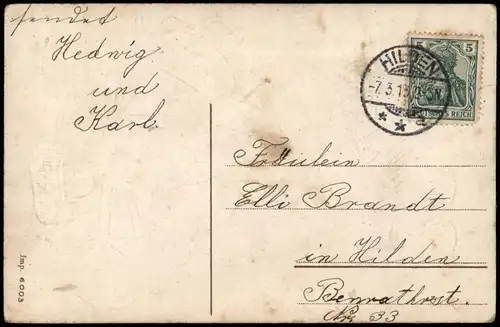 sendet
Hedwig
und
Karl.
5 5
DEUTSCHES REICH
HILDEN
-7.3.13.
Fräulein
Elli Brandt
in Hilden
Benrathrst.
Nr. 33
Imp. 6003